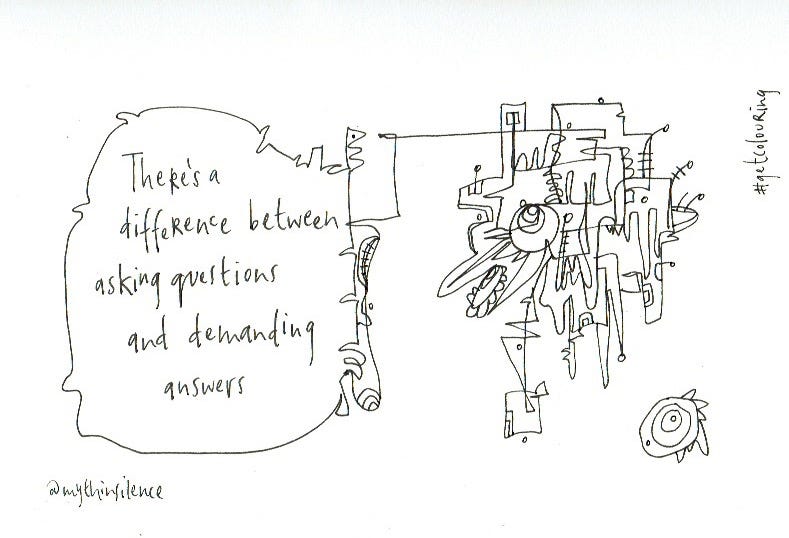 There's a
difference between
asking questions
and demanding
answers
@mythinsilence
#getcolouring